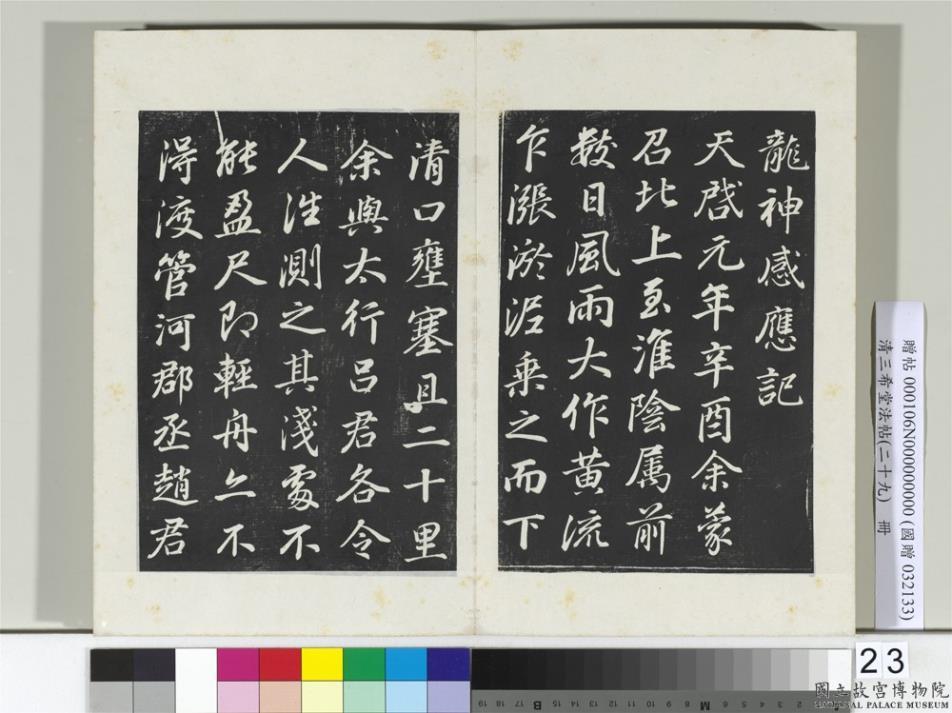 龍神感應記
天啓元年辛酉余蒙
召北上至淮陰属前
數日風雨大作黄流
乍漲淤泥乗之而下
清口壅塞且二十里
余與太行吕君各令
人往測之其淺處不
能盈尺即輕舟亦不
得渡管河郡丞趙君
贈帖 000106N000000000 (國贈 032133)
清三希堂法帖(二十九) 冊
23
國立故宮博物院
NATIONAL PALACE MUSEUM
19 18 17 16 15 B 12 11 10 9 8 M 5 4 3 2 1